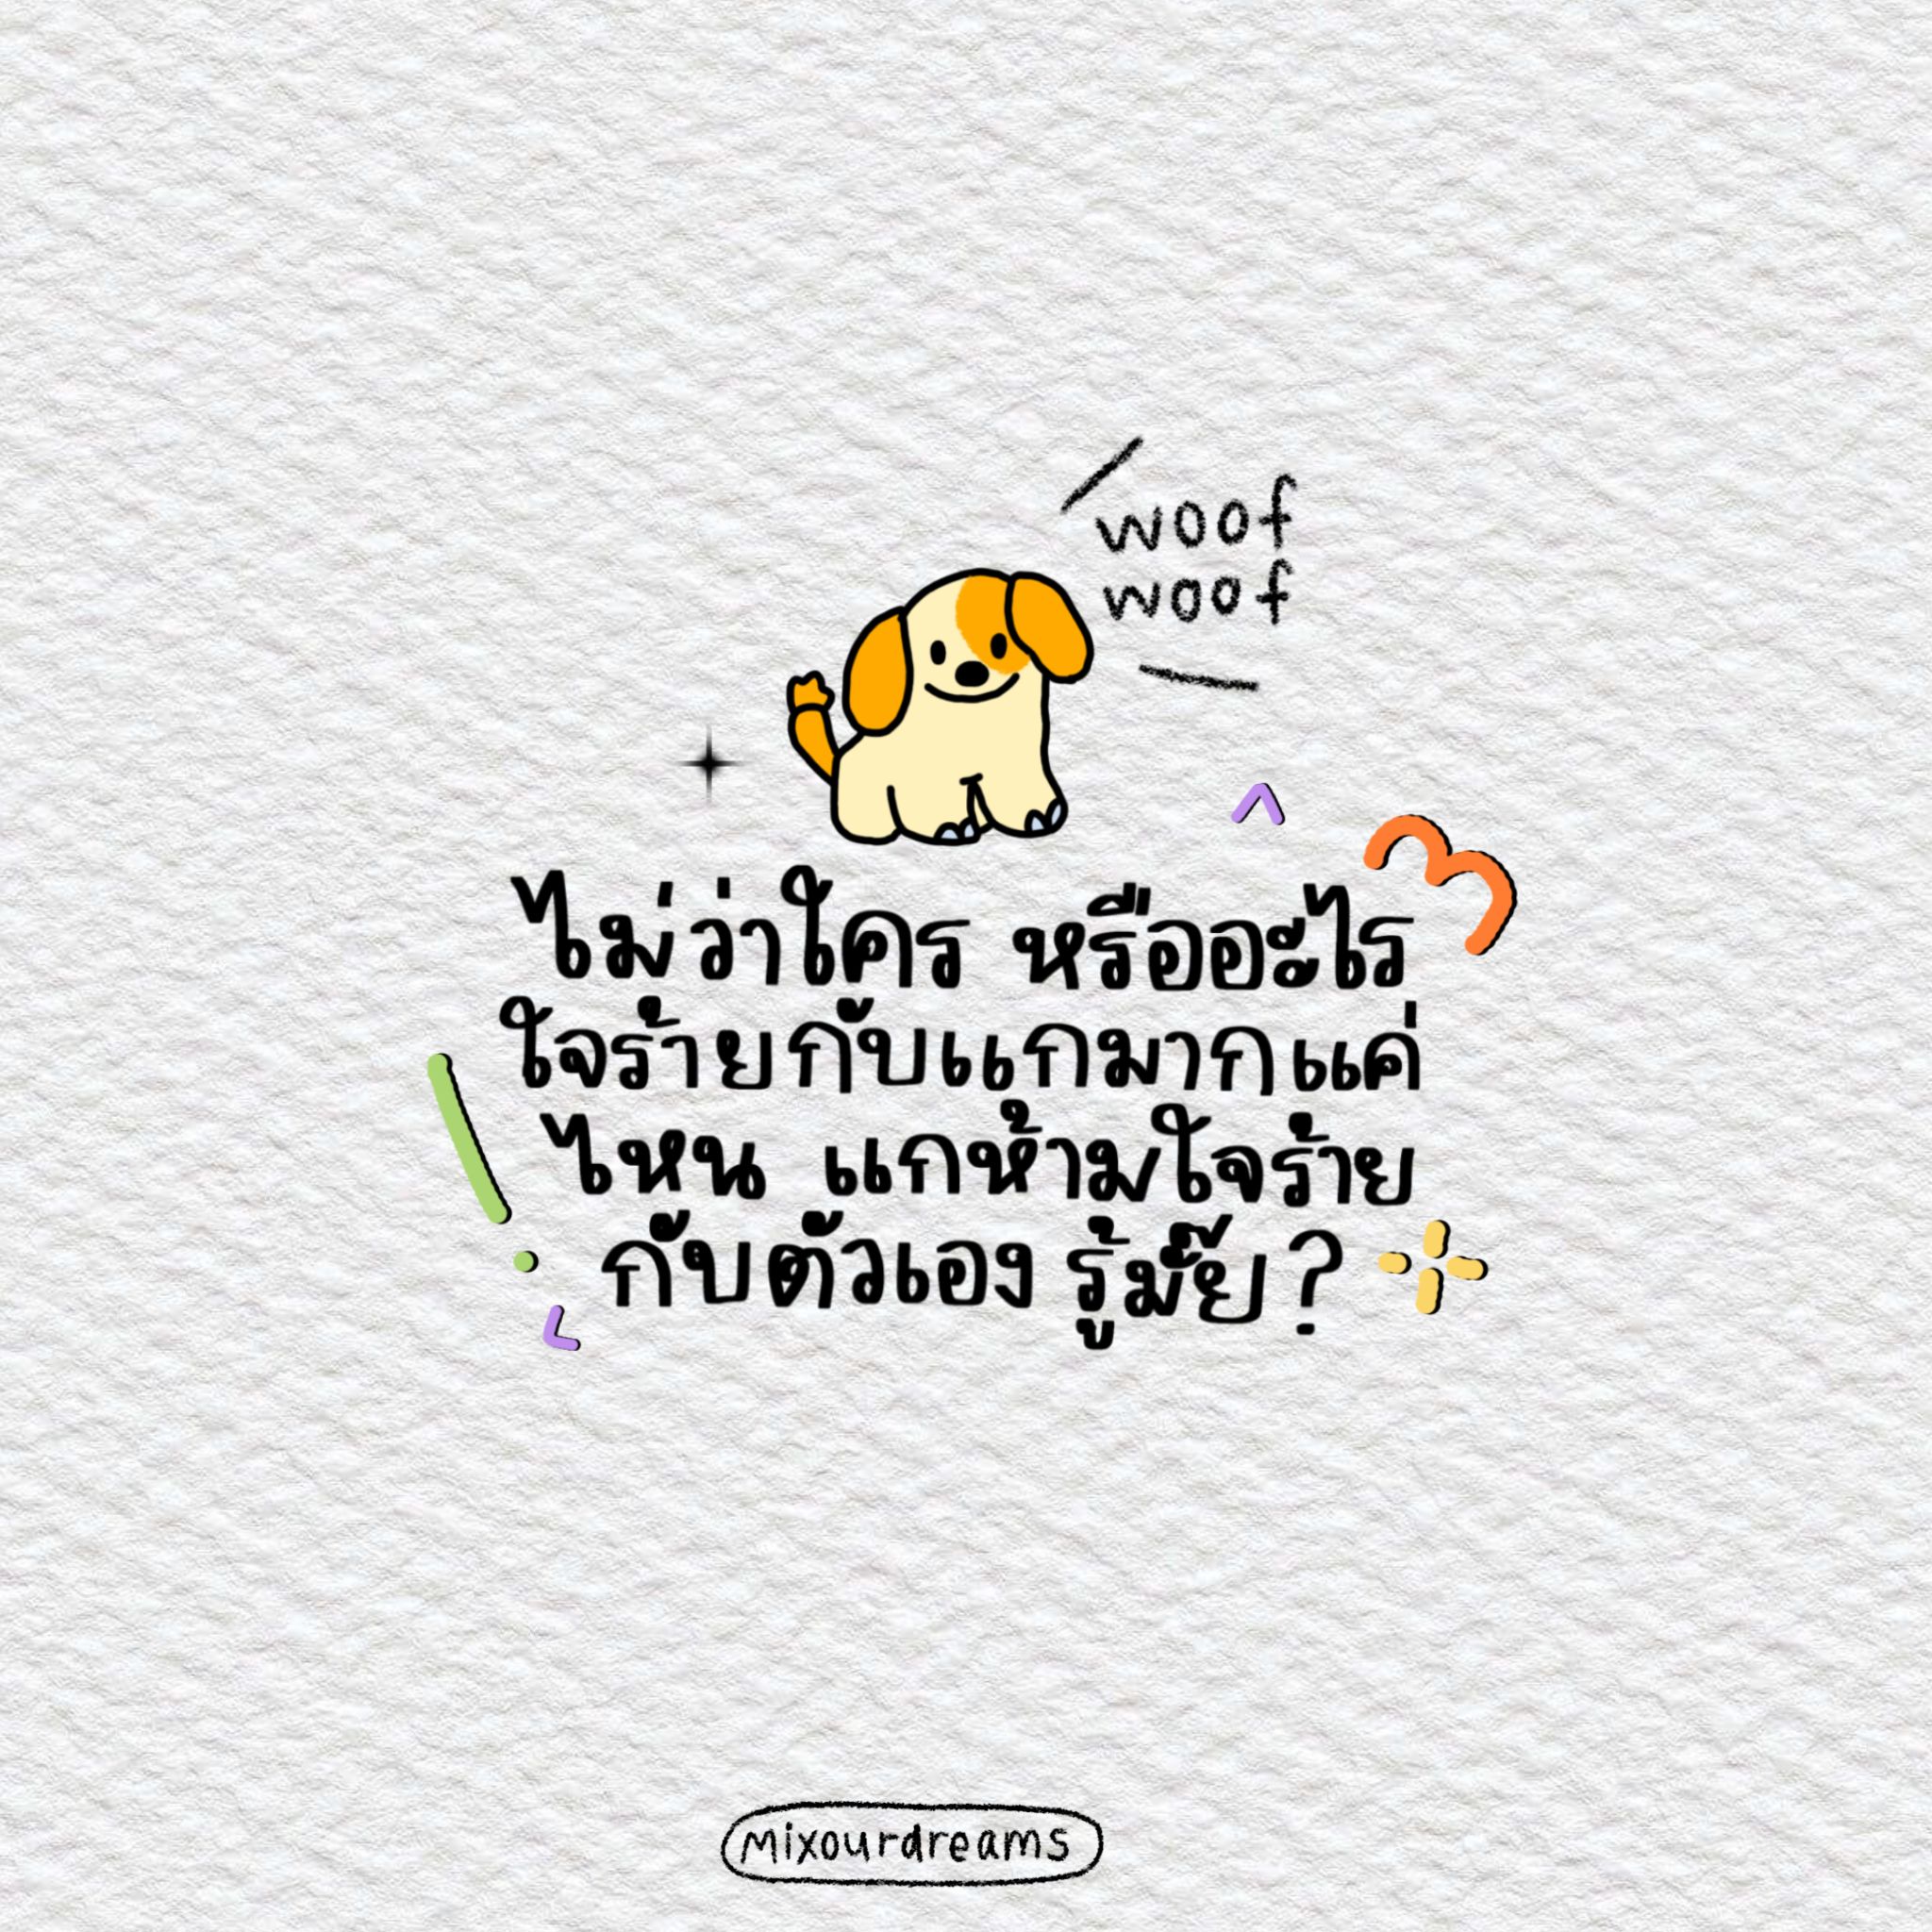 woof
woof
ไม่ว่าใคร หรืออะไร
ใจร้ายกับแกมากแค่
ไหน แกห้ามใจร้าย
กับตัวเอง รู้มั๊ย?
mixourdreams